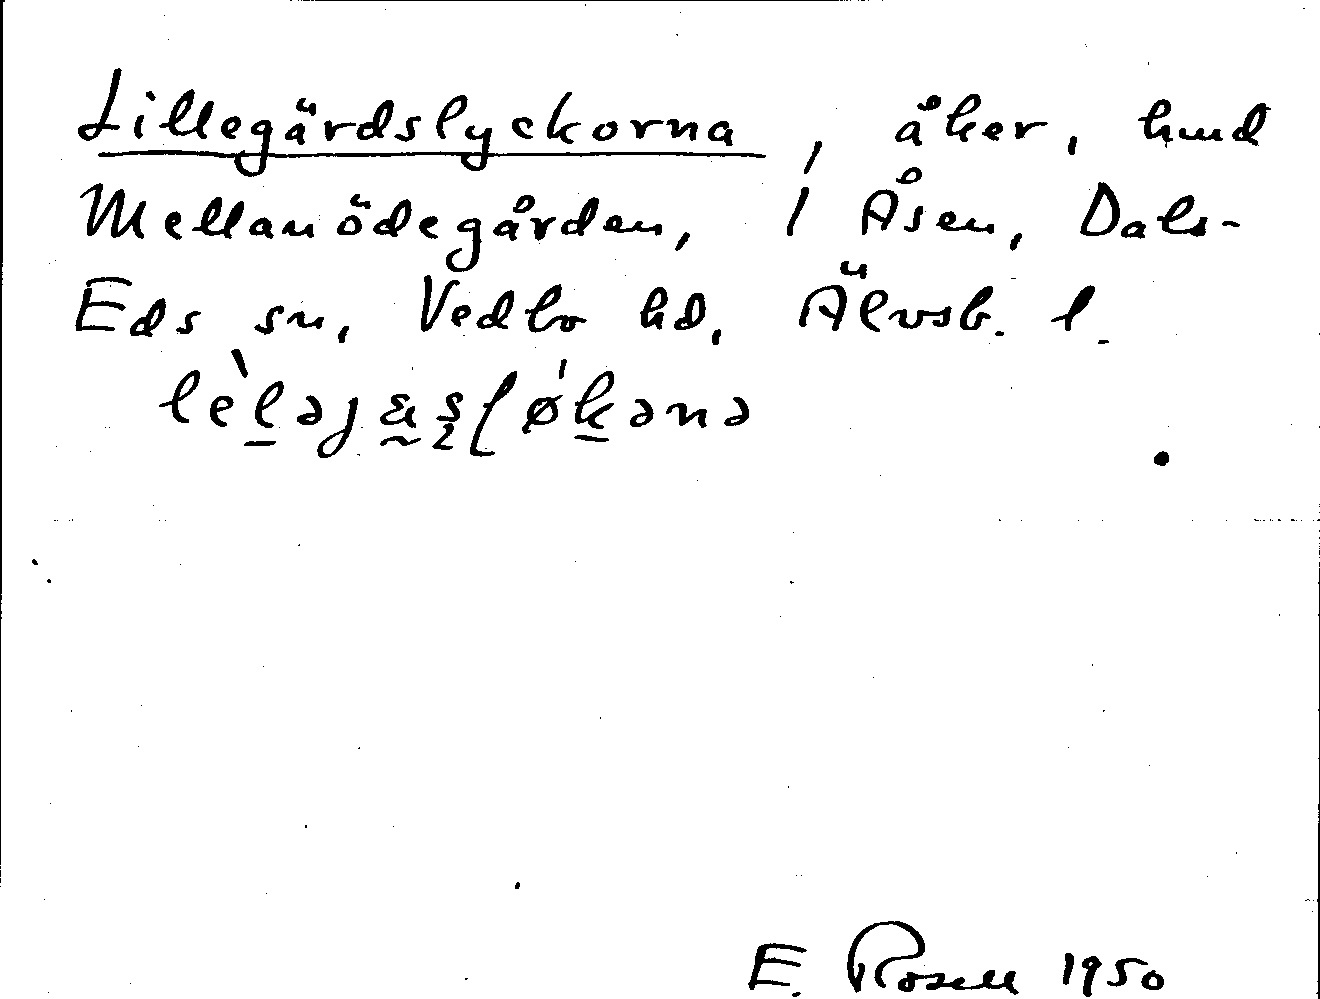 Lillegärdslyckorna, åker, hmd
Mellanödegården, 1 Åsen, Dals-
Eds sn, Vedbo hd, Älvsb. l.
E. Rosell 1950